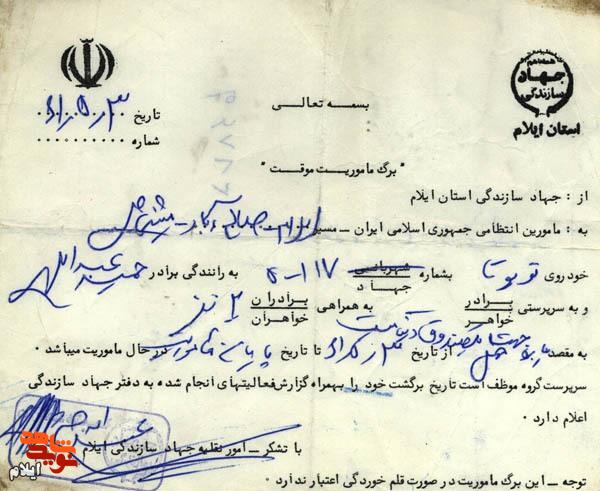 جهاد
سازندگی
استان ایلام
بسمه تعالی
تاریخ ۶۱٫۵٫۳۰
شماره ..........
"برگ ماموریت موقت"
از : جهاد سازندگی استان ایلام
به : مامورین انتظامی جمهوری اسلامی ایران ــ مسیر ایلام ــ صالح آباد ــ
خودروی تویوتا بشماره شهربانی جهاد ۱۱۷ــ۵ به رانندگی برادر حمید عبداللهی
و به سرپرستی برادر خواهر به همراهی برادران خواهران ۲ نفر
بمقصد از تاریخ تا تاریخ پایان ماموریت در حال ماموریت میباشد .
سرپرست گروه موظف است تاریخ برگشت خود را بهمراه گزارش فعالیتهای انجام شده به دفتر جهاد سازندگی
اعلام دارد .
با تشکر ــ امور نقلیه جهاد سازندگی ایلام
توجه ــ این برگ ماموریت در صورت قلم خوردگی اعتبار ندارد .
نوید شاهد
ایلام